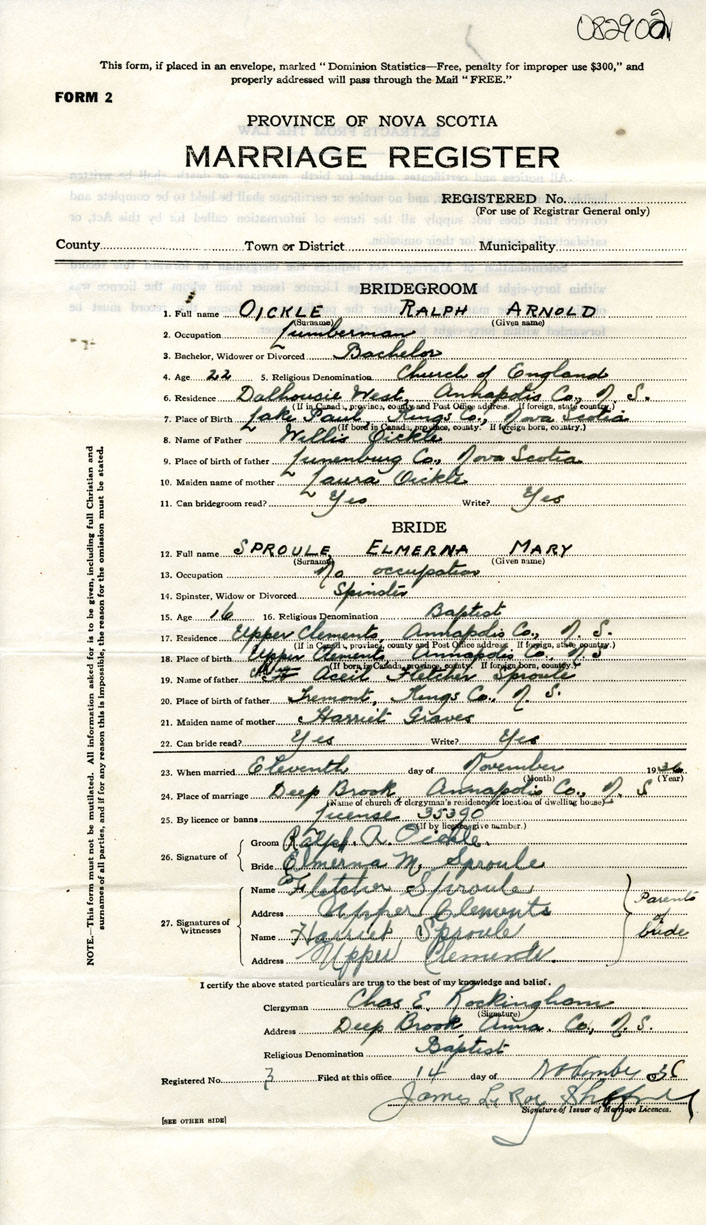 082902
This form, if placed in an envelope, marked " Dominion Statistics—Free, penalty for improper use $300," and
properly addressed will pass through the Mail " FREE."
FORM 2
PROVINCE OF NOVA SCOTIA
MARRIAGE REGISTER
REGISTERED No.
(For use of Registrar General only)
County Town or District Municipality
BRIDEGROOM
1. Full name OICKLE RALPH ARNOLD
(Surname) (Given name)
2. Occupation Lumberman
3. Bachelor, Widower or Divorced Bachelor
4. Age 22 5. Religious Denomination Church of England
6. Residence Dalhousie West, Annapolis Co., N. S.
(If in Canada, province, county and Post Office address. If foreign, state country.)
7. Place of Birth Lake Paul, Kings Co., Nova Scotia
(If born in Canada, province, county. If foreign born, country.)
8. Name of Father Willis Oickle
9. Place of birth of father Lunenburg Co., Nova Scotia
10. Maiden name of mother Laura Oickle
11. Can bridegroom read? Yes Write? Yes
BRIDE
12. Full name SPROULE ELMERNA MARY
(Surname) (Given name)
13. Occupation No occupation
14. Spinster, Widow or Divorced Spinster
15. Age 16 16. Religious Denomination Baptist
17. Residence Upper Clements, Annapolis Co., N. S.
(If in Canada, province, county and Post Office address. If foreign, state country.)
18. Place of birth Upper Clements Annapolis Co., N. S
(If born in Canada, province, county. If foreign born, country.)
19. Name of father Aceil Fletcher Sproule
20. Place of birth of father Tremont, Kings Co., N. S.
21. Maiden name of mother Harriet Graves
22. Can bride read? Yes Write? Yes
23. When married Eleventh day of November 1936
(Month) (Year)
24. Place of marriage Deep Brook Annapolis Co., N. S
(Name of church or clergyman's residence or location of dwelling house)
25. By licence or banns License 35390
(If by licence give number.)
26. Signature of
Groom Ralph A. Oickle.
Bride Elmerna M. Sproule
27. Signatures of Witnesses
Name Fletcher Sproule
Address Upper Clements
Name Harriet Sproule
Address Upper Clements.
Parents
of
bride
I certify the above stated particulars are true to the best of my knowledge and belief.
Clergyman Chas E. Rockingham
(Signature)
Address Deep Brook Anna. Co., N. S.
Religious Denomination Baptist
Registered No. 3 Filed at this office 14 day of November 36
James Le Roy
Signature of Issuer of Marriage Licences.
[SEE OTHER SIDE]
NOTE.—This form must not be mutilated. All information asked for is to be given, including full Christian and
surnames of all parties, and if for any reason this is impossible, the reason for the omission must be stated.